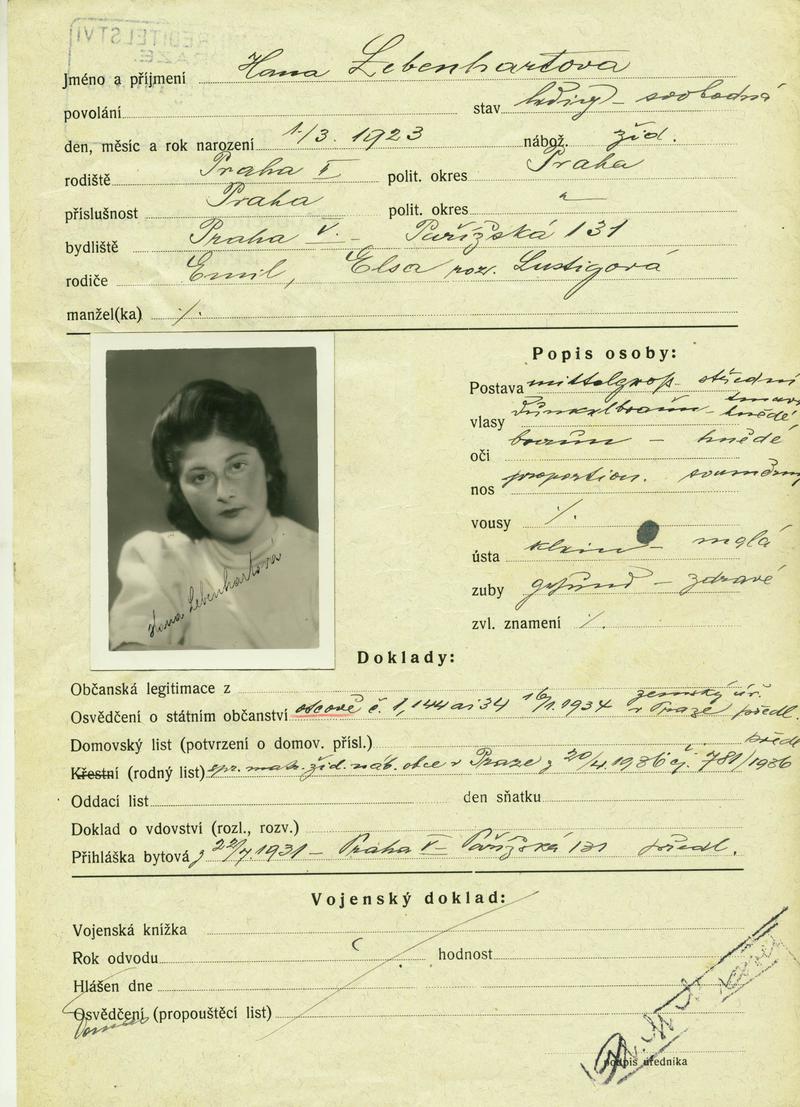 ŘEDITELSTVÍ
PRAZE.
Jméno a příjmení Hana Lebenhartova
povolání stav ledig – svobodná
den, měsíc a rok narození 1./3. 1923 nábož. žid.
rodiště Praha II polit. okres Praha
příslušnost Praha polit. okres "
bydliště Praha V. – Pařížská 131
rodiče Emil, Elsa roz. Lustigová
manžel(ka) ·/.
Popis osoby:
Postava mittelgroß – střední
vlasy dunkelbraun – tmavohnědé
oči braun – hnědé
nos proportion. souměrný
vousy ·/.
ústa klein – malá
zuby gesund – zdravé
zvl. znamení ·/.
Hana Lebenhartová
Doklady:
Občanská legitimace z
Osvědčení o státním občanství otcově č. 1,144 ai 34 16/1. 1934 zemský úř. v Praze předl.
Domovský list (potvrzení o domov. přísl.)
Křestní (rodný list) spr. matr. žid. náb. obce v Praze z 20/4. 1936 čj. 781/1936
Oddací list den sňatku
Doklad o vdovství (rozl., rozv.)
Přihláška bytová z 22/7. 1931 – Praha V – Pařížská 131 předl.
Vojenský doklad:
Vojenská knížka
Rok odvodu hodnost
Hlášen dne
Osvědčení (propouštěcí list)
podpis úředníka